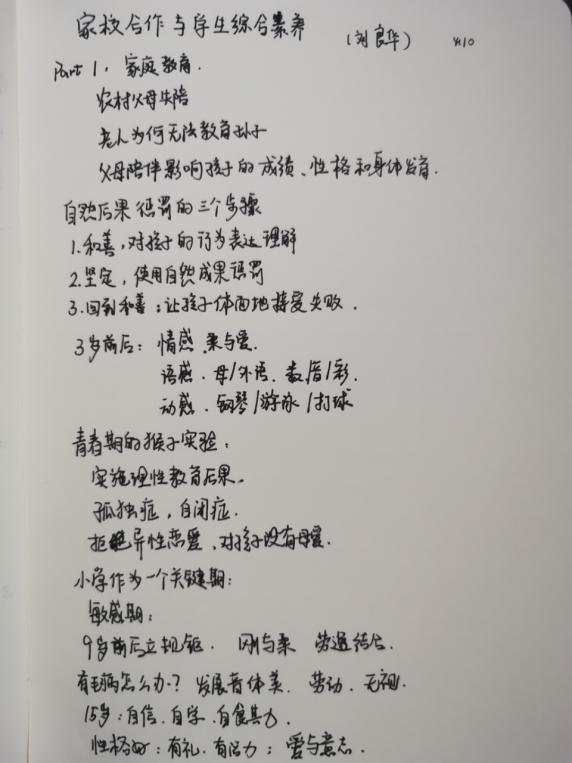 家校合作与学生综合素养 (刘良华) 4.10
Part 1. 家庭教育.
农村父母失陪
老人为何无法教育孙子
父母陪伴影响孩子的成绩、性格和身体发育.
自然后果惩罚的三个步骤
1.和善,对孩子的行为表达理解
2.坚定,使用自然成果惩罚
3.回到和善:让孩子体面地接受失败.
3岁前后:情感 柔与爱.
语感.母/外语.数/音/彩.
动感.钢琴/游泳/打球
青春期的猴子实验:
实施理性教育后果.
孤独症,自闭症.
拒绝异性恋爱、对孩子没有母爱.
小学作为一个关键期:
敏感期:
9岁前后立规矩. 刚与柔 劳逸结合.
有毛病怎么办?发展音体美.劳动.无视.
15岁:自信.自学.自食其力.
性格好:有礼.有活力;爱与意志.